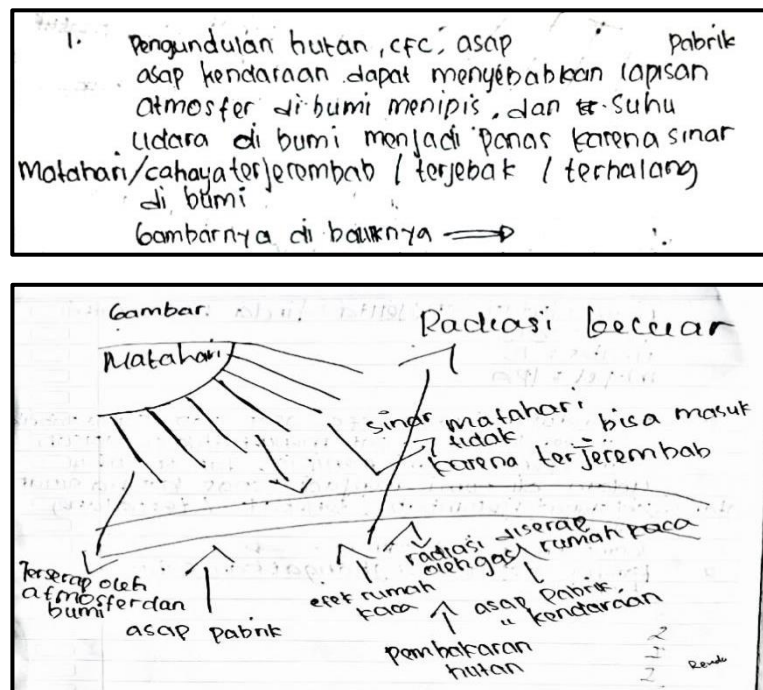 1. Pengundulan hutan, CFC, asap pabrik
asap kendaraan dapat menyebabkan lapisan
atmosfer di bumi menipis, dan suhu
udara di bumi menjadi panas karena sinar
Matahari/cahaya terjerembab / terjebak / terhalang
di bumi
Gambarnya di baliknya →
Gambar.
Matahari
Radiasi keluar
sinar matahari
tidak bisa masuk
karena terjerembab
Terserap oleh
atmosfer dan
bumi
asap pabrik
efek rumah
kaca
radiasi diserap
oleh gas rumah kaca
asap pabrik
" kendaraan
pembakaran
hutan
2
2